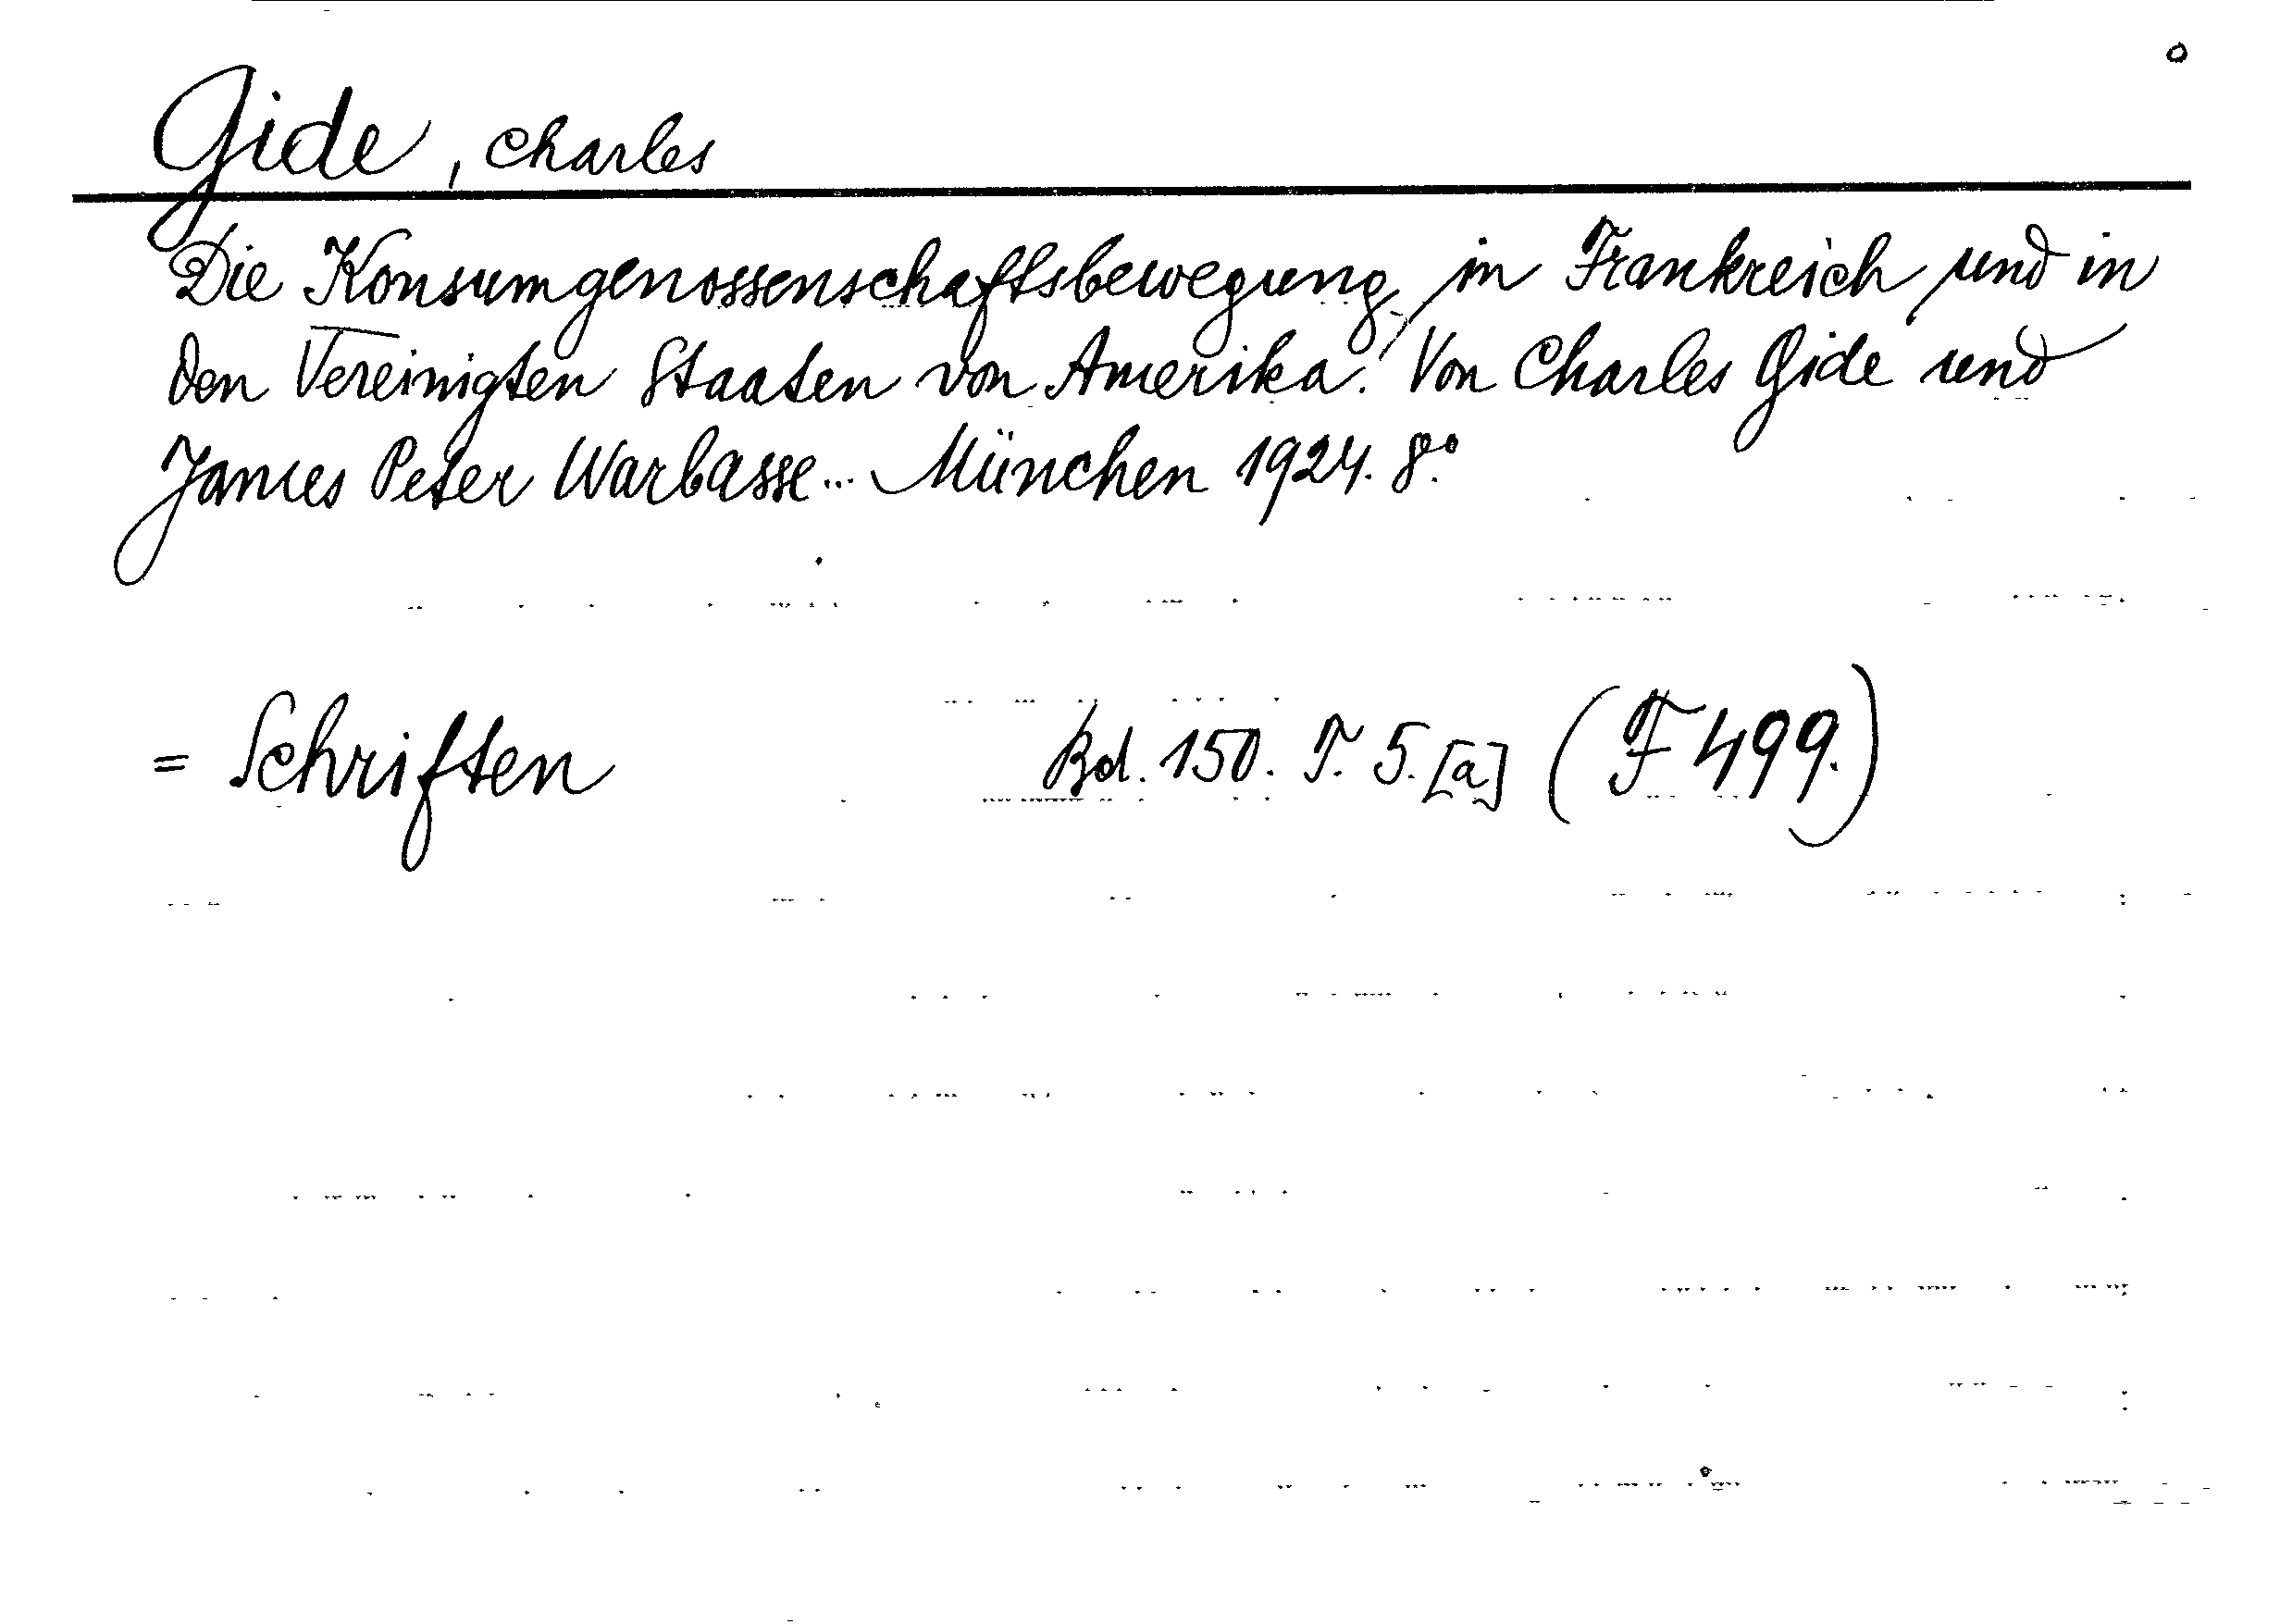 Gide, Charles
Die Konsumgenossenschaftsbewegung in Frankreich und in
den Vereinigten Staaten von Amerika. Von Charles Gide und
James Peter Warbasse... München 1924. 8°.
= Schriften Bd. 150. T. 5. [a] (F 499.)